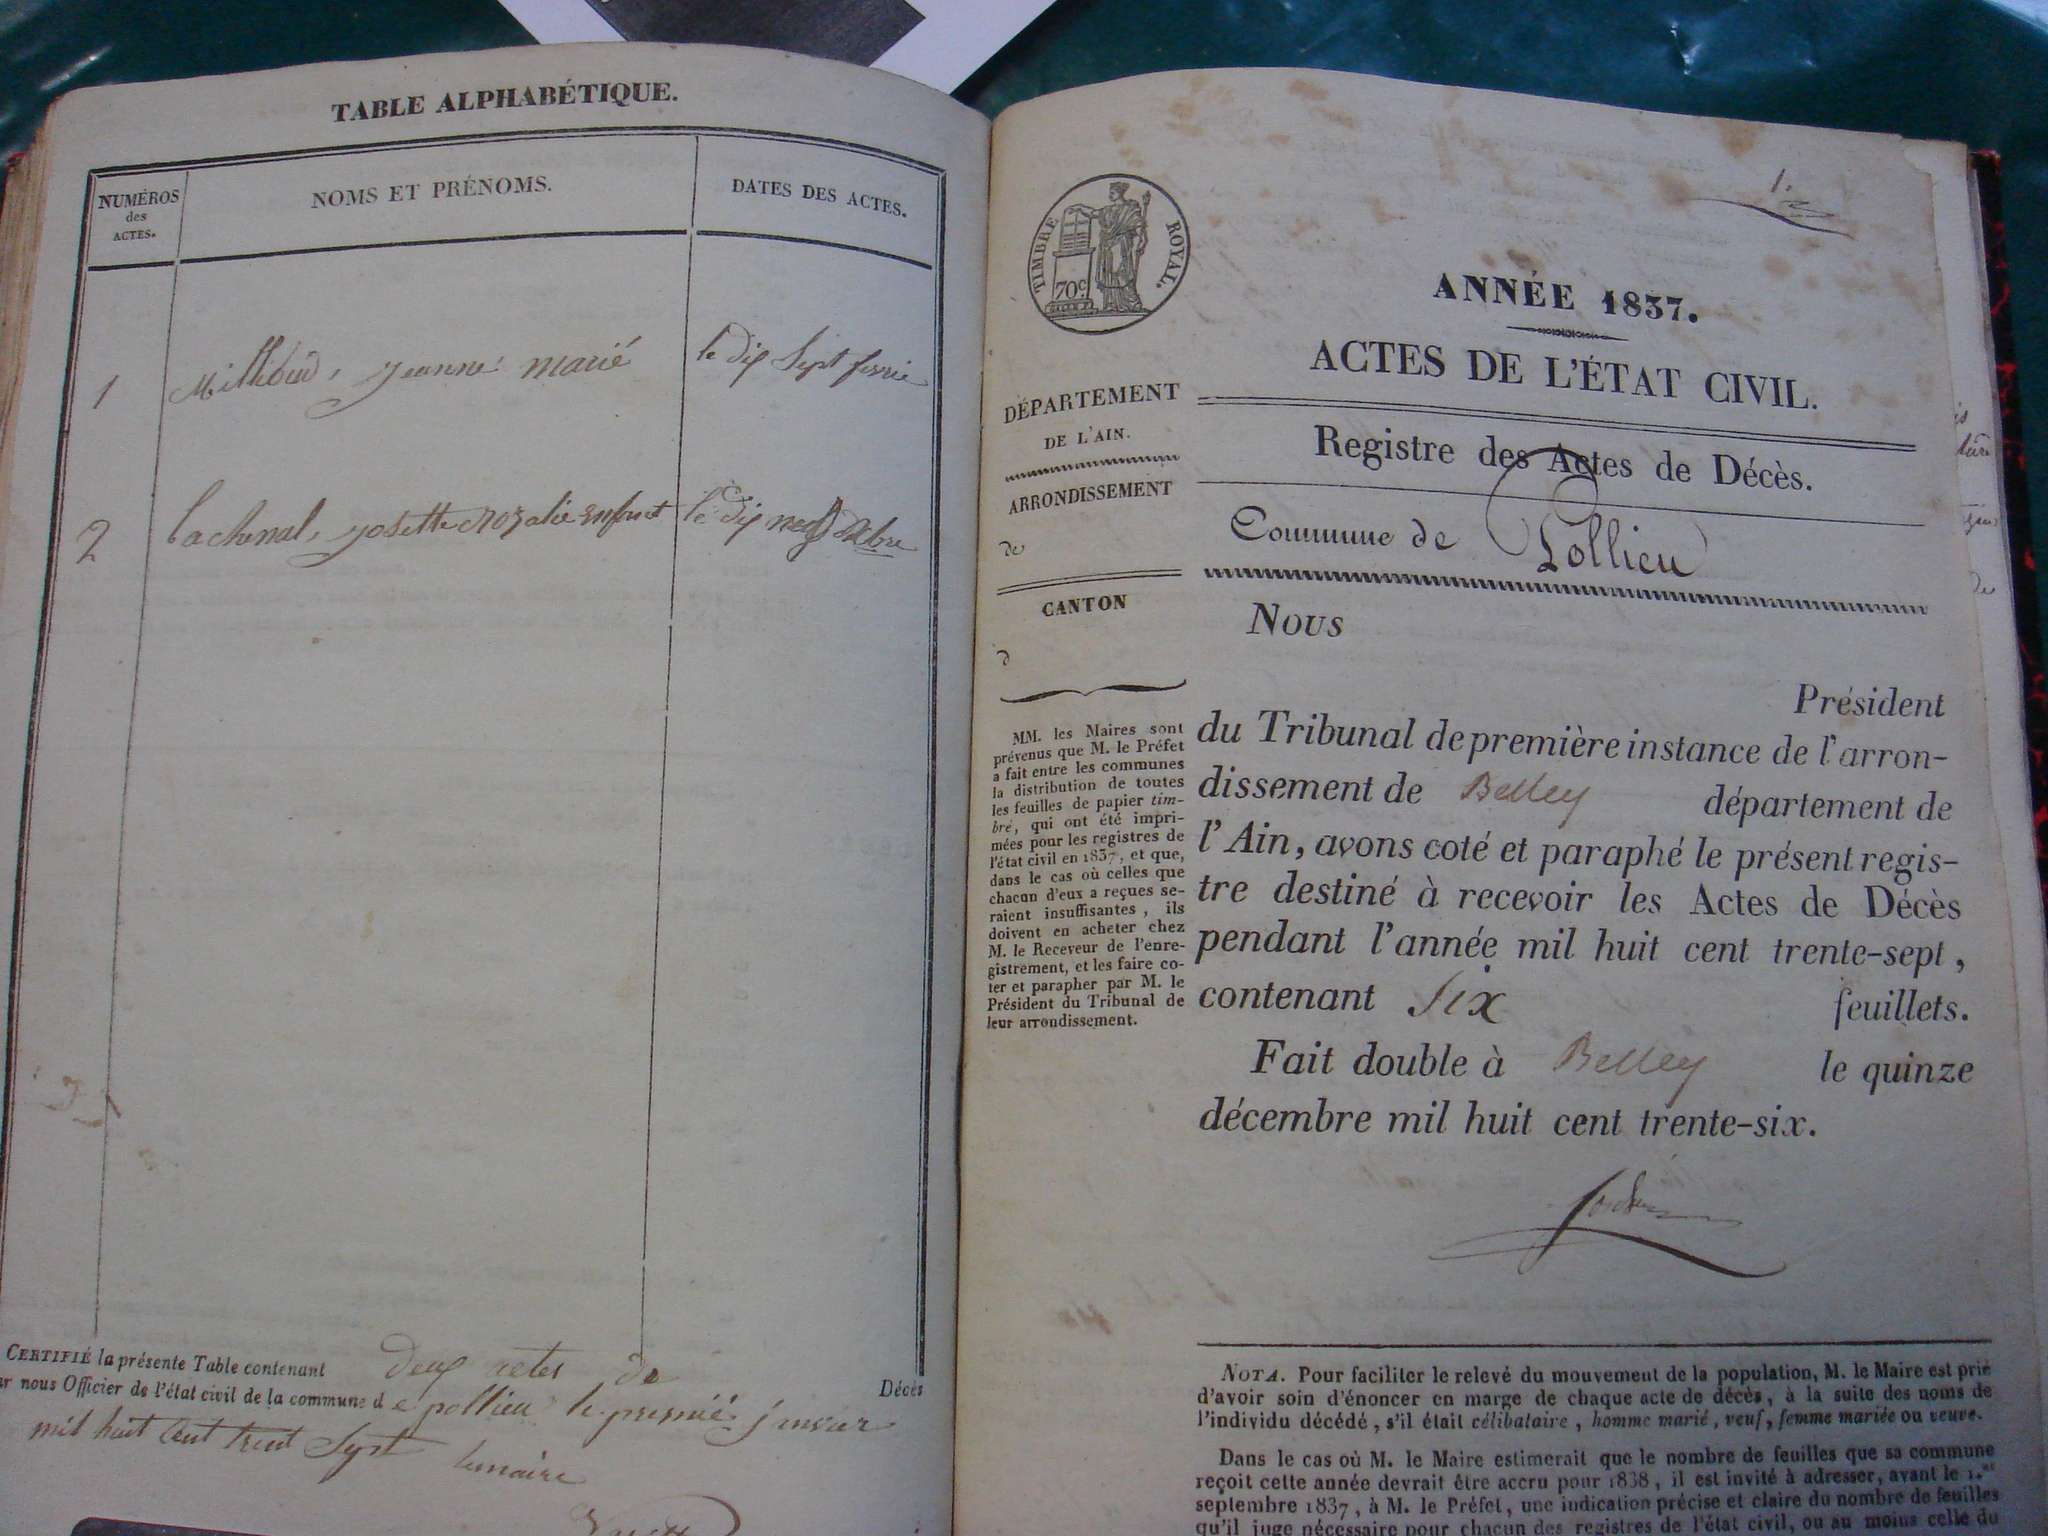 TABLE ALPHABÉTIQUE.
NUMÉROS
des
ACTES.
NOMS ET PRÉNOMS.
DATES DES ACTES.
1 jeanne marié le dix sept
2 Lachenal, josette rozalie enfant le dix neuf
CERTIFIÉ la présente Table contenant deux actes de Décès
r nous Officier de l'état civil de la commune de pollieu le premié janvier
mil huit cent trent sept
1.
TIMBRE ROYAL.
70c.
ANNÉE 1837.
ACTES DE L'ÉTAT CIVIL.
DÉPARTEMENT
DE L'AIN.
ARRONDISSEMENT
de
CANTON
d
Registre des Actes de Décès.
Commune de Pollieu
Nous
Président
du Tribunal de première instance de l'arron-
dissement de Belley département de
l'Ain, avons coté et paraphé le présent regis-
tre destiné à recevoir les Actes de Décès
pendant l'année mil huit cent trente-sept,
contenant six feuillets.
Fait double à Belley le quinze
décembre mil huit cent trente-six.
MM. les Maires sont
prévenus que M. le Préfet
a fait entre les communes
la distribution de toutes
les feuilles de papier tim-
bré, qui ont été impri-
mées pour les registres de
l'état civil en 1837, et que,
dans le cas où celles que
chacun d'eux a reçues se-
raient insuffisantes, ils
doivent en acheter chez
M. le Receveur de l'enre-
gistrement, et les faire co-
ter et parapher par M. le
Président du Tribunal de
leur arrondissement.
NOTA. Pour faciliter le relevé du mouvement de la population, M. le Maire est prié
d'avoir soin d'énoncer en marge de chaque acte de décès, à la suite des noms de
l'individu décédé, s'il était célibataire, homme marié, veuf, femme mariée ou veuve.
Dans le cas où M. le Maire estimerait que le nombre de feuilles que sa commune
reçoit cette année devrait être accru pour 1838, il est invité à adresser, avant le 1.er
septembre 1837, à M. le Préfet, une indication précise et claire du nombre de feuilles
qu'il juge nécessaire pour chacun des registres de l'état civil, ou au moins celle du